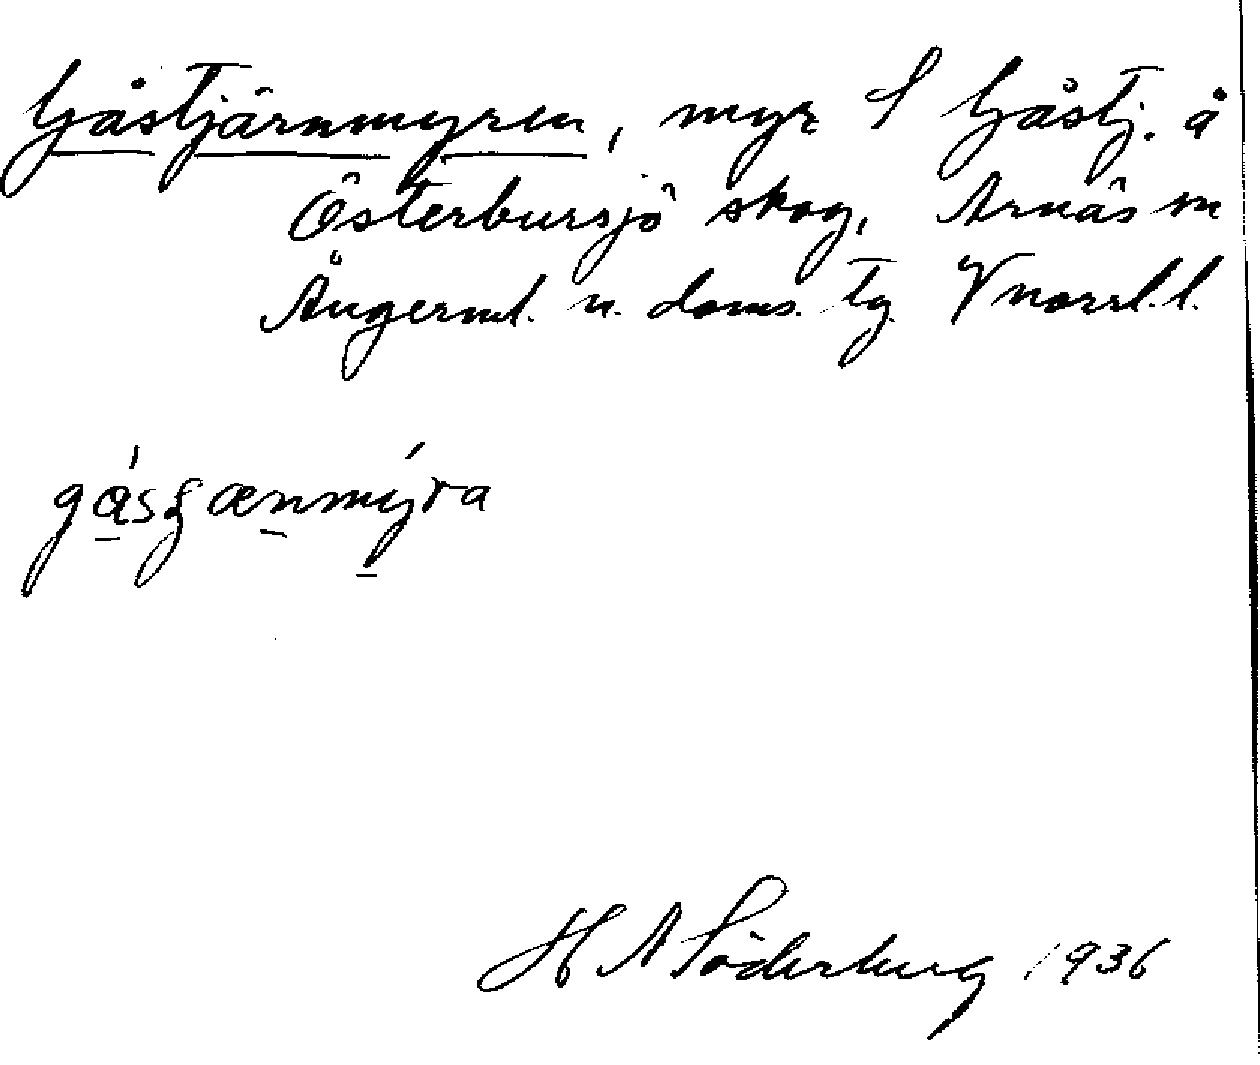 Gåstjärnmyren, myr S Gåstj. å
Österbursjö skog, Arnäs sn
Ångerml. n. doms. tg Vnorrl.l.
gásʒænmýra
H A Söderberg 1936